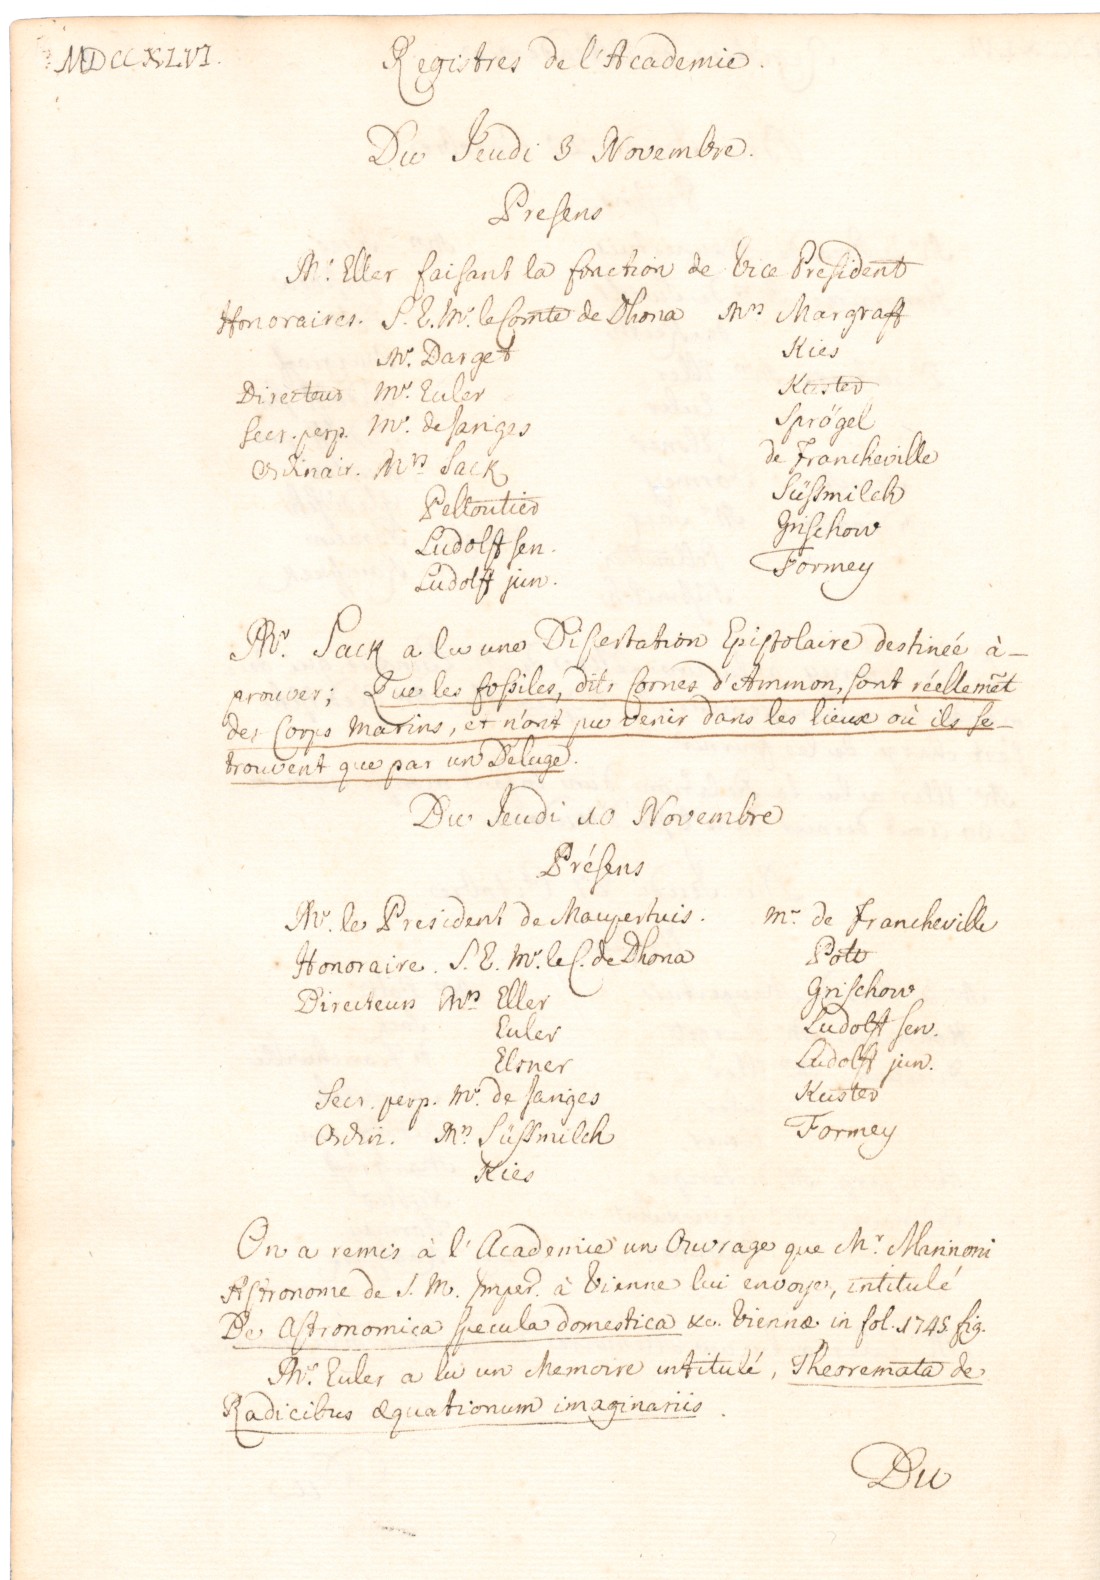 MDCCXLVI.
Registres de l'Academie.
Du Jeudi 3 Novembre.
Presens
Mr. Eller faisant la fonction de Vice President
Honoraires. S. E. Mr. le Comte de Dhona
Mr. Darget
Directeur Mr. Euler
Secr. perp. Mr. de Jariges
Ordinair. Mrs Sack
Pelloutier
Ludolff sen.
Ludolff jun.
Mrs Margraff
Kies
Kuster
Sprögel
de Francheville
Süssmilch
Grischow
Formey
Mr. Sack a lu une Dissertation Epistolaire destinée à
prouver; Que les fossiles, dits Cornes d'Ammon, sont réellemēt
des Corps Marins, et n'ont pu venir dans les lieux où ils se
trouvent que par un Deluge.
Du Jeudi 10 Novembre
Présens
Mr. le President de Maupertuis.
Honoraire. S. E. Mr. le C. de Dhona
Directeurs Mrs Eller
Euler
Elsner
Secr. perp. Mr. de Jariges
Ordin. Mrs Süssmilch
Kies
Mrs de Francheville
Pott
Grischow
Ludolff sen.
Ludolff jun.
Kuster
Formey
On a remis à l'Academie un Ouvrage que Mr. Marinoni
Astronome de S. M. Imper. à Vienne lui envoye, intitulé
De Astronomica specula domestica &c. Viennæ in fol. 1745 fig.
Mr. Euler a lu un Memoire intitulé, Theoremata de
Radicibus æquationum imaginariis.
Du